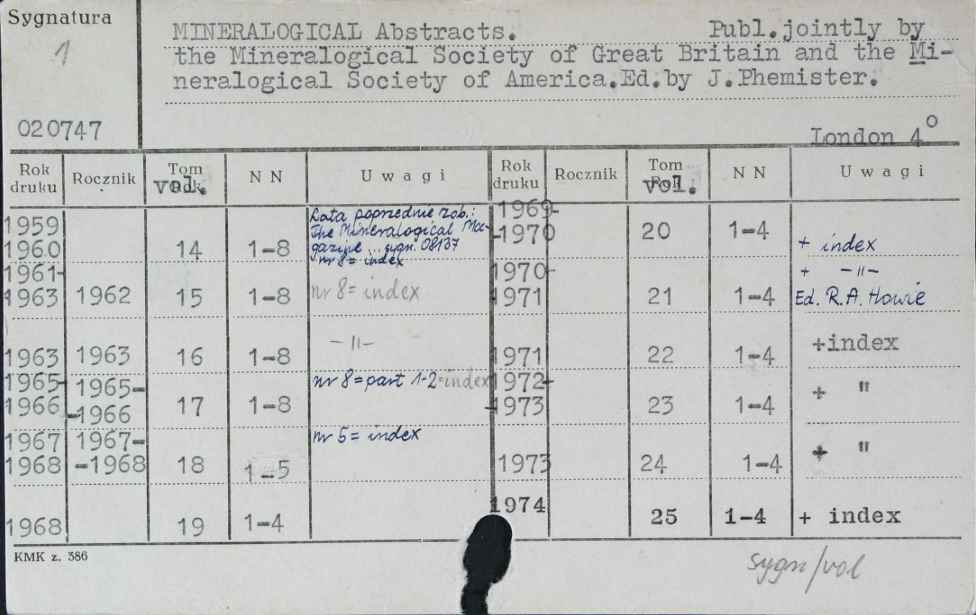 Sygnatura
1
020747
MINERALOGICAL Abstracts. Publ.jointly by
the Mineralogical Society of Great Britain and the Mi-
neralogical Society of America.Ed.by J.Phemister.
London 4°
Rok druku Rocznik Tom vol. N N Uwagi Rok druku Rocznik Tom vol. N N Uwagi
1959
1960 14 1-8 Lata poprzednie zob.:
The Mineralogical Ma-
gazine... sygn. 08137
nr 8 = index
1961-
1963 1962 15 1-8 nr 8 = index
1963 1963 16 1-8 -||-
1965- 1965-
1966 -1966 17 1-8 nr 8 = part 1-2 = index
1967 1967-
1968 -1968 18 1-5 nr 5 = index
1968 19 1-4
1969-
-1970 20 1-4 + index
1970- + -||-
1971 21 1-4 Ed. R.A. Howie
1971 22 1-4 +index
1972-
-1973 23 1-4 + "
1973 24 1-4 + "
1974 25 1-4 + index
KMK z. 386
sygn/vol